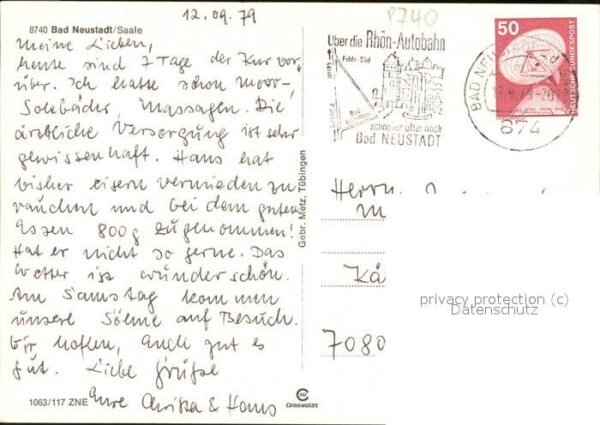 12.09.79
8740
8740 Bad Neustadt/Saale
Meine Lieben,
heute sind 7 Tage der Kur vor,
über. Ich hatte schon Moor-,
Solebäder, Massagen. Die
ärztliche Versorgung ist sehr
gewissenhaft. Hans hat
bisher eisern vermieden zu
rauchen und bei dem guten
Essen 800g zugenommen!
Hat er nicht so gerne. Das
Wetter ist wunderschön.
Am Samstag kommen
unsere Söhne auf Besuch.
Wir hoffen, Euch gut es
gut. Liebe Grüße
Eure Christa & Hans
1063/117 ZNE
CHROMOLUX
Gebr. Metz, Tübingen
Über die Rhön-Autobahn
Fulda-Süd
Bad
schneller öfter nach
Bad NEUSTADT
BAD NEU
874
50
DEUTSCHE BUNDESPOST
Herrn
M
Kä
7080
privacy protection (c)
Datenschutz